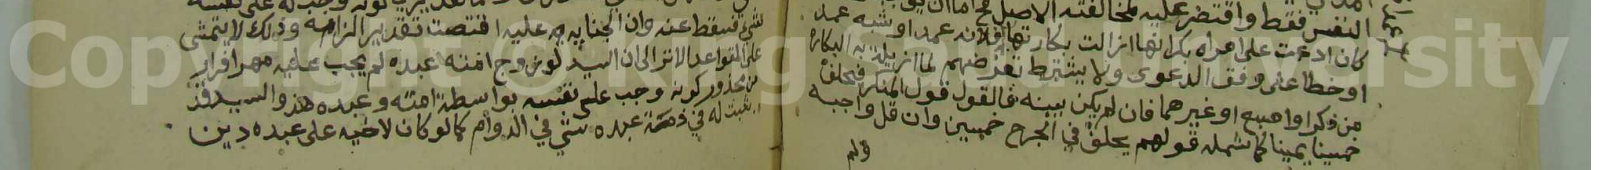 النفس فقط واقتصر عليه لمخالفته الاصل
كان ادعت على امراه بكر انها ازالت بكارتها فلانه عمدا وشبه عمد
او خطا على وفق الدعوى ولا يشترط تعرضهم لما ازيلت به البكارة
من ذكر او اصبع او غيرهما فان لم يكن بينه فالقول قول المنكر فيحلف
خمسين يمينا كما شمله قولهم يحلف في الجرح خمسين وان قل واجبه
ولم
على نفسه
شيء فسقط عنه وان الجنايه عليه اقتضت تقدير الزامه وذلك لا يتمشى
على القواعد الا ترا الى ان السيد لو زوج امته عبده لم يجب عليه مهر
من كونه وجب على نفسه بواسطة امته وعبده هذا والسيد قد
يثبت له في ذمة عبده شي في الدوام كما لو كان لاخيه على عبده دين
Copyright © King Saud University